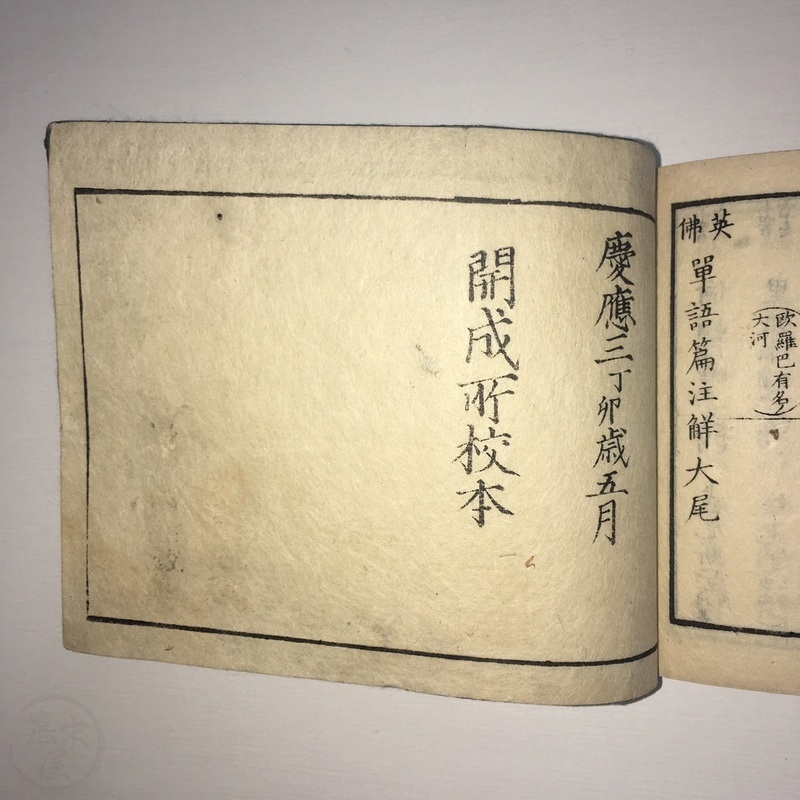 歐羅巴有名
大河
英佛單語篇注解大尾
慶應三丁卯歳五月
開成所校本